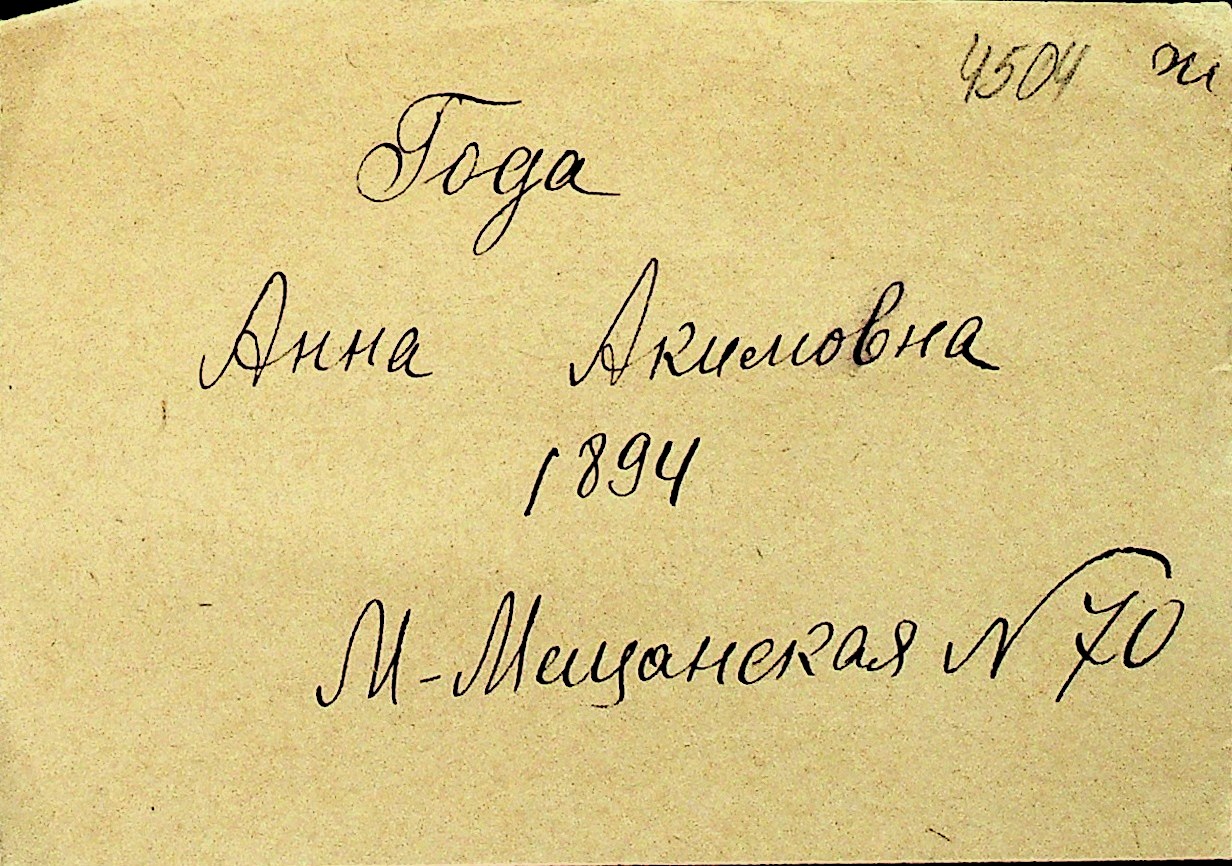 4504 ж
Года
Анна Акимовна
1894
М-Мещанская N 70